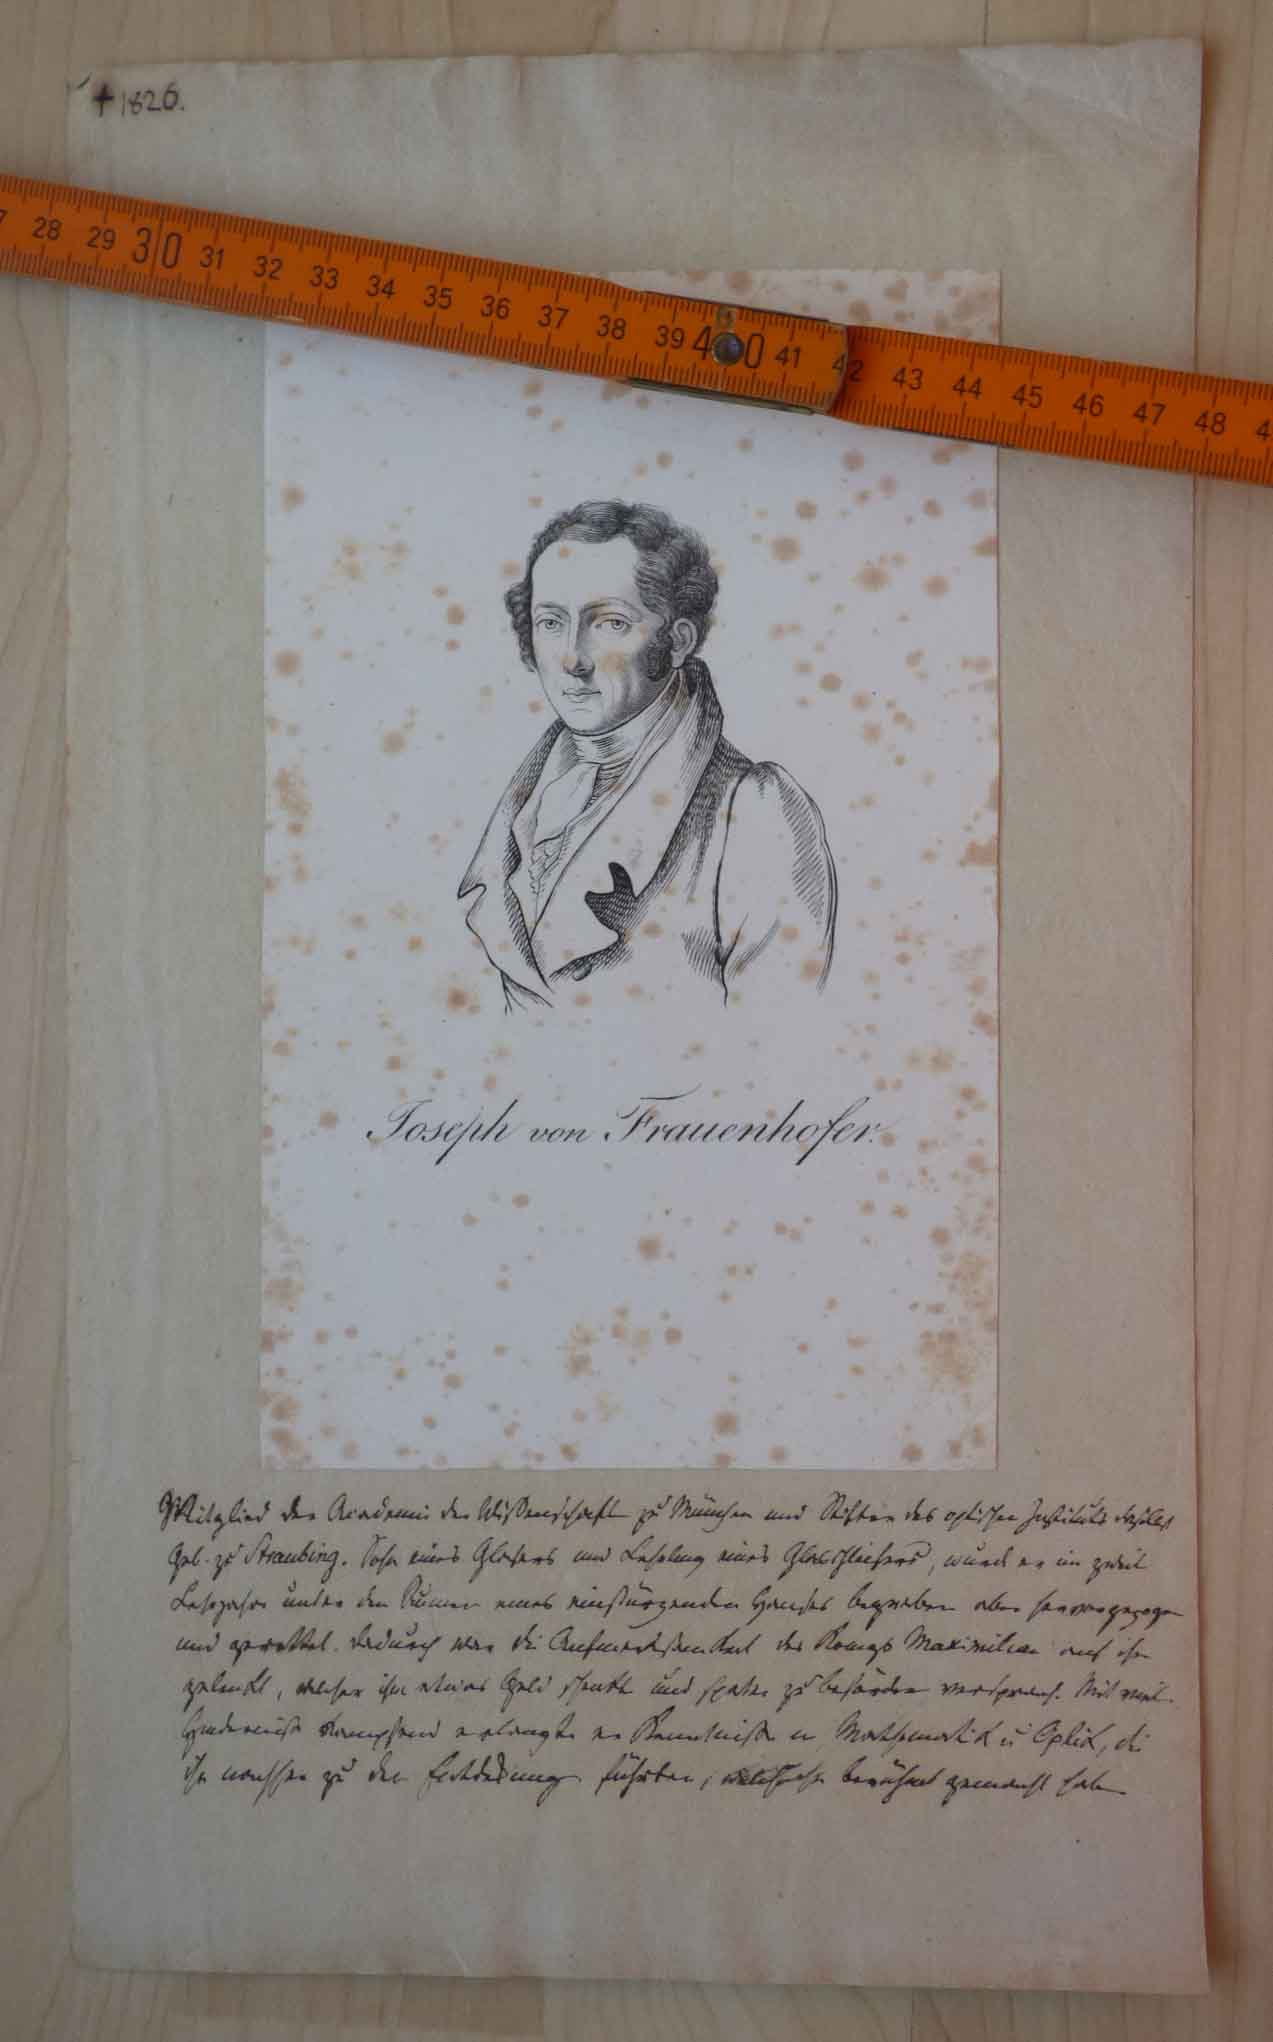 ✝ 1826.
28 29 30 31 32 33 34 35 36 37 38 39 40 41 42 43 44 45 46 47 48
Joseph von Frauenhofer.
Mitglied der Academie der Wißenschaft zu München und Stifter des optischen Instituts daselbst
Geb. zu Straubing. Sohn eines Glasers und Lehrling eines Glasschleifers, wurde er im zweit
Lehrjahre unter den Ruinen eines einstürzenden Hauses begraben aber hervorgezogen
und gerettet. Dadurch war die Aufmerksamkeit des Königs Maximilian auf ihn
gelenkt, welcher ihm etwas Geld schenkte und später zu befördern versprach. Mit viel
Hinderniße kämpfend erlangte er Kenntniße in Mathematik u Optik, die
ihn nachher zu den Entdeckung führten, berühmt gemacht haben